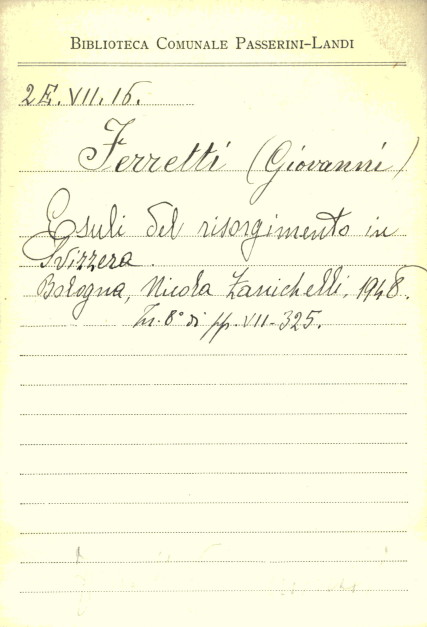 BIBLIOTECA COMUNALE PASSERINI-LANDI
2E. VII. 16.
Ferretti (Giovanni)
Esuli del risorgimento in
Svizzera.
Bologna, Nicola Zanichelli, 1948.
In. 8° di pp. VII-325.